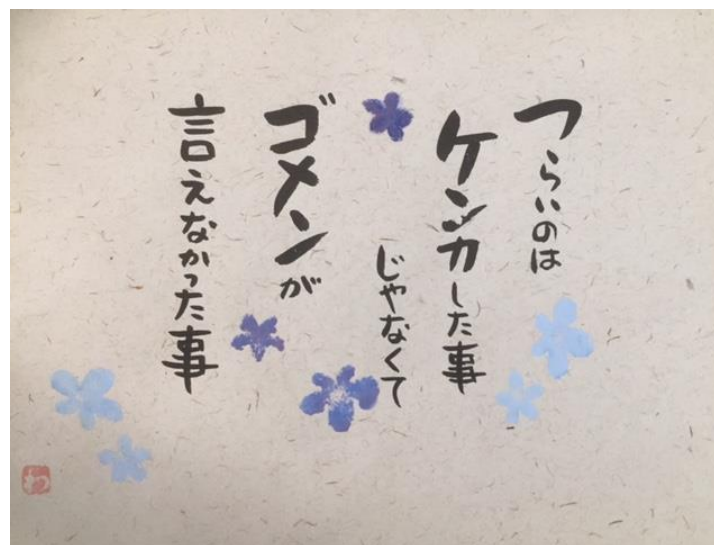 つらいのは
ケンカした事
じゃなくて
ゴメンが
言えなかった事
わ